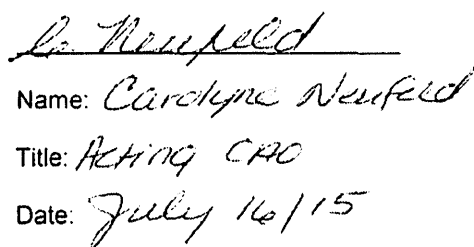 C Neufeld
Name: Carolyne Neufeld
Title: Acting CAO
Date: July 16/15